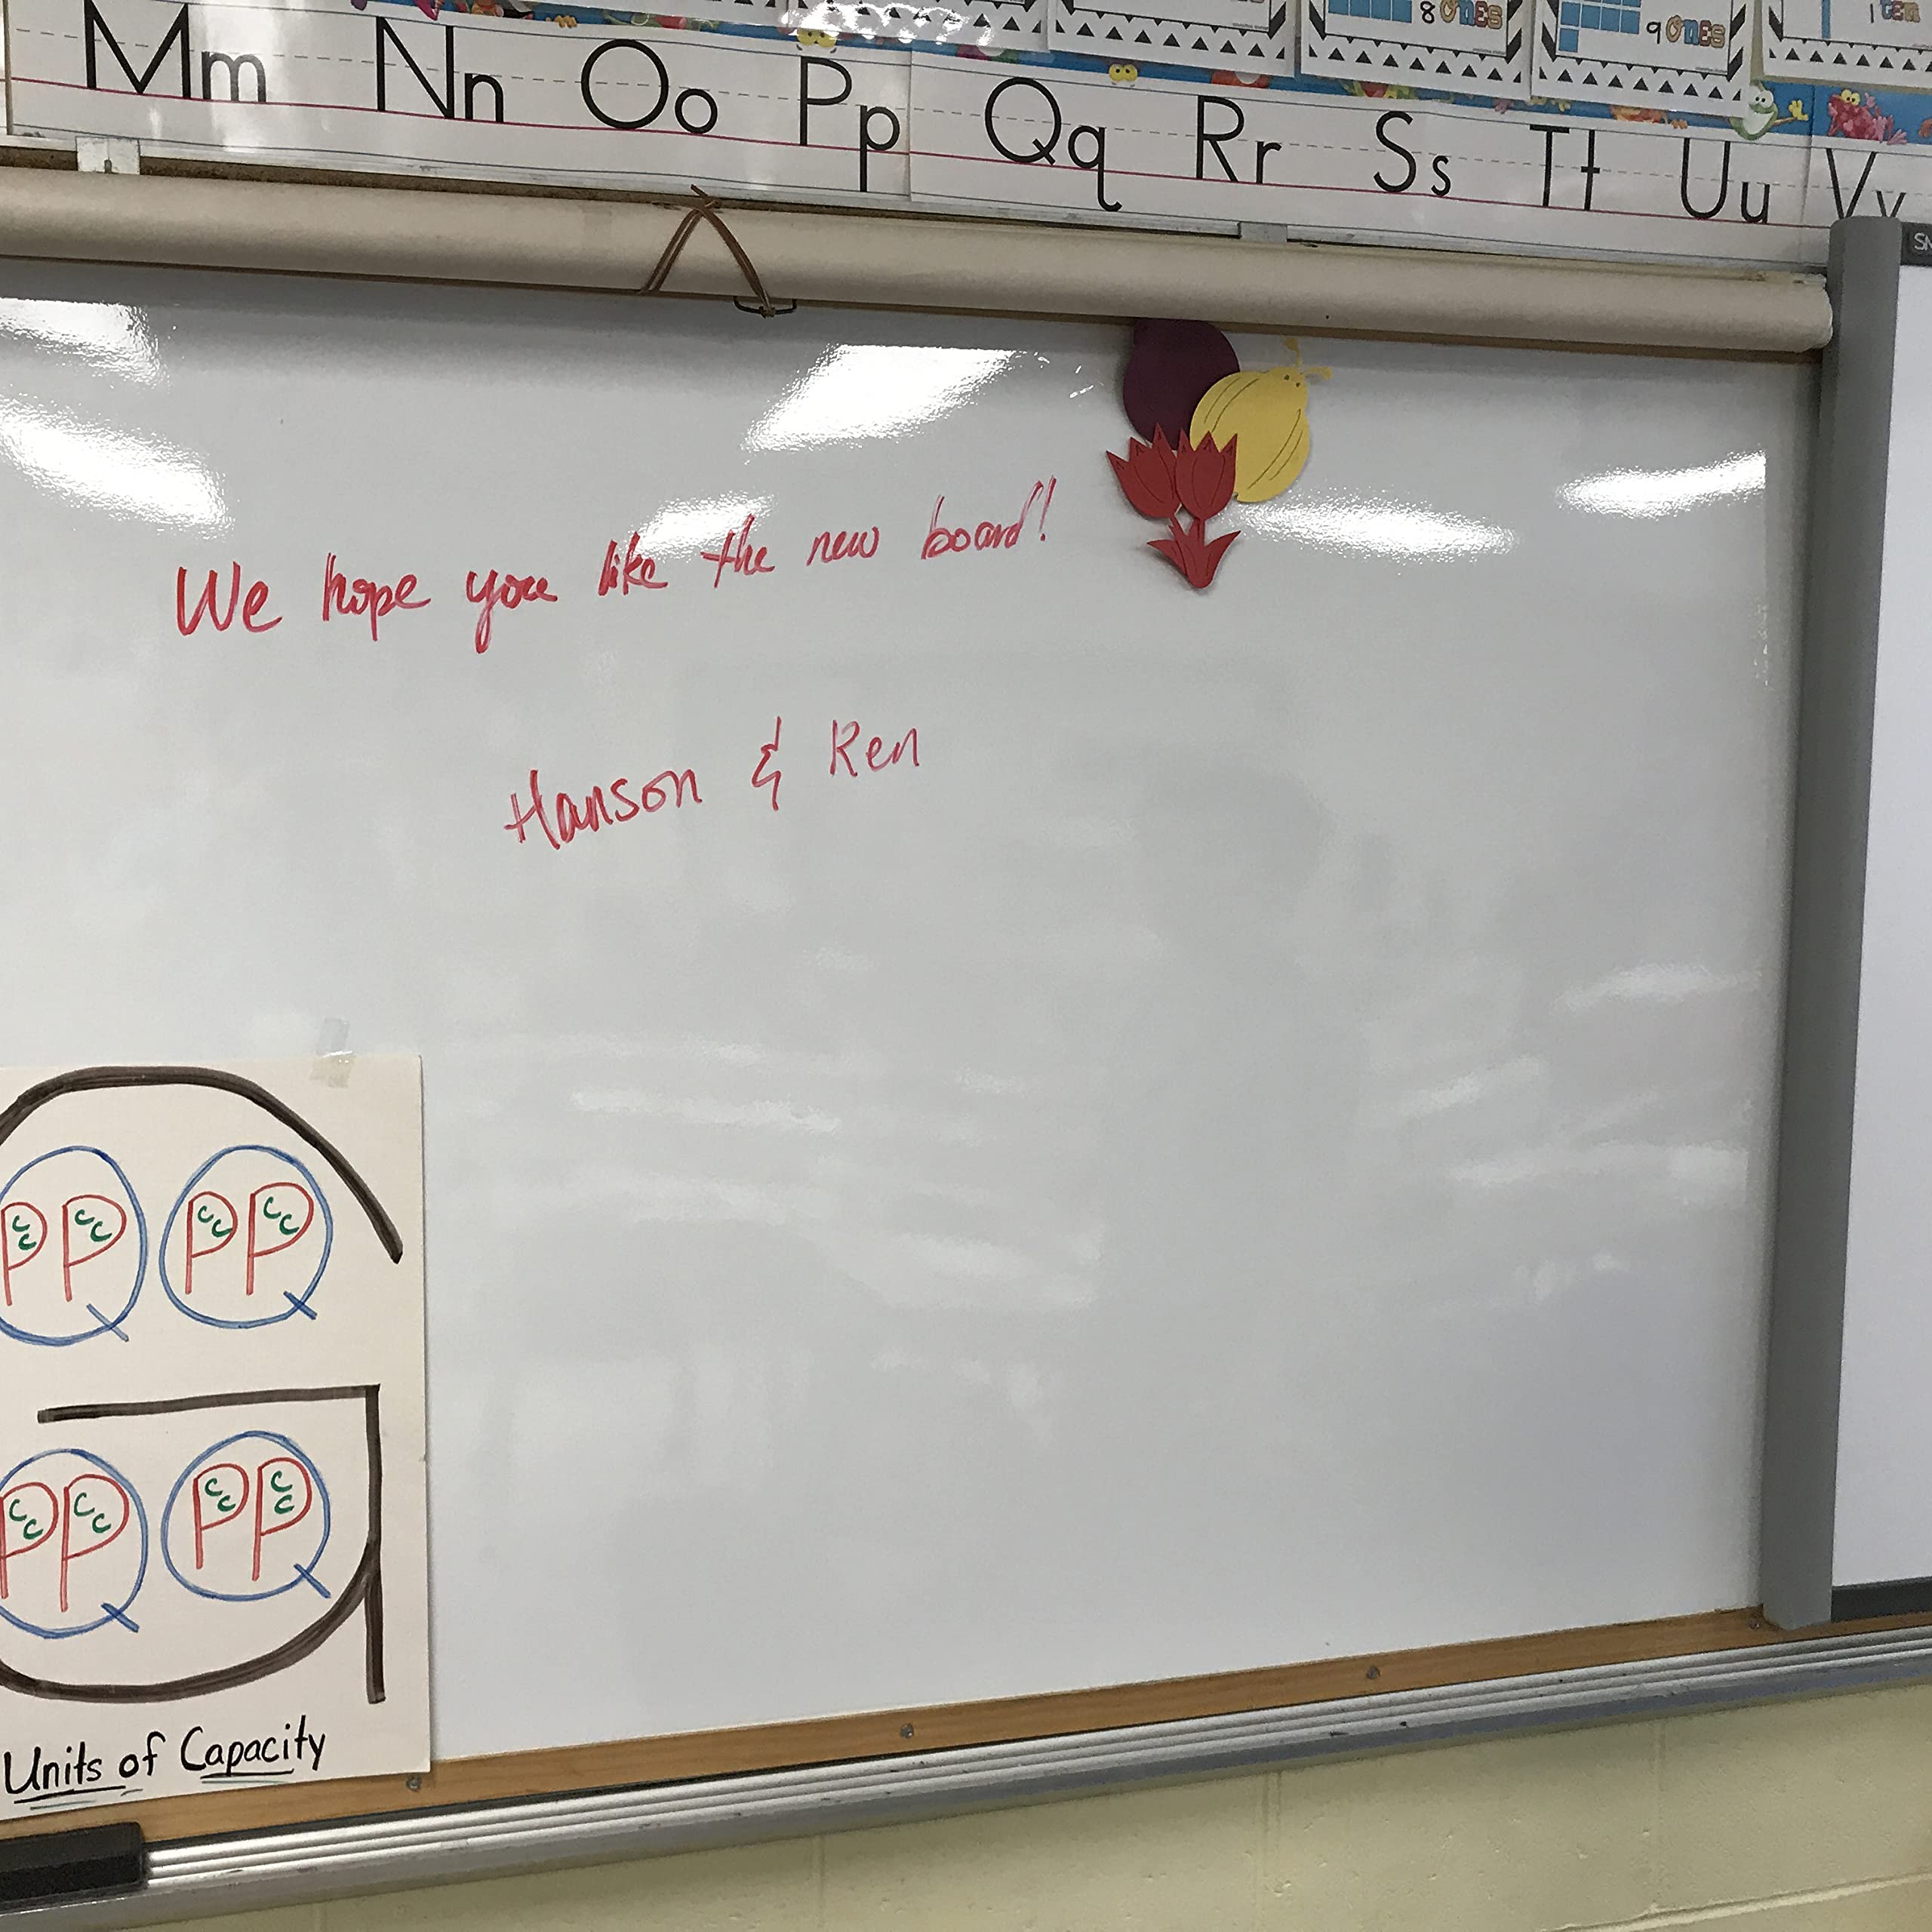 8 ONES
9 ONES
1 TEN
Mm Nn Oo Pp Qq Rr Ss Tt Uu Vv
We hope you like the new board!
Hanson & Ren
P C C P C C Q P C C P C C Q
P C C P C C Q P C C P C C Q
Units of Capacity